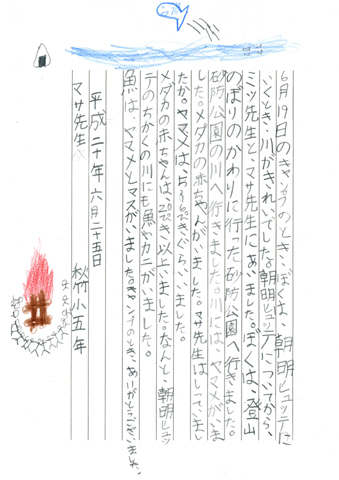 6月19日のキャンプのとき、ぼくは、朝明ヒュッテに
いくとき、川がきれいでした。朝明ヒュッテについてから、
ミッ先生とマサ先生にあいました。ぼくは、登山
のぼりのかわりに行った砂防公園へ行きました。
砂防公園の川へ行きました。川には、ヤマメがいま
した。メダカの赤ちゃんがいました。マサ先生はしっていまし
たか。ヤマメは、5〜6ぴきぐらいいました。
メダカの赤ちゃんは、20ぴき以上いました。なんと、朝明ヒュッ
テのちかくの川にも魚やカニがいました。
魚は、ヤマメとマスがいました。キャンプのとき、ありがとうございました。
平成二十年 六月二十五日
マサ先生 秋竹小五年